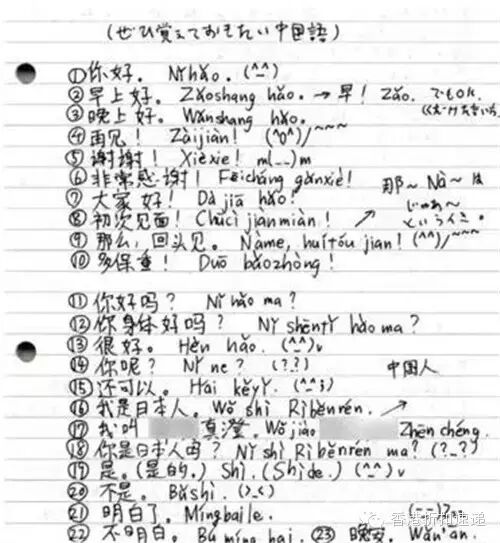 (ぜひ覚えておきたい中国語)
①你好。 Nǐhǎo. (^_^)
②早上好。 Zǎoshang hǎo. → 早! Zǎo. でもOK.
③晚上好。 Wǎnshang hǎo.
④再见! Zàijiàn! (^o^)/~~~
⑤谢谢! Xièxie! m(__)m
⑥非常感谢! Fēicháng gǎnxiè!
⑦大家好! Dà jiā hǎo!
那~ Nà~ は
じゃあ~
という
⑧初次见面! Chūcì jiànmiàn!
⑨那么,回头见。 Nàme, huítóu jiàn! (^^)/~~~
⑩多保重! Duō bǎozhòng!
⑪你好吗? Nǐ hǎo ma?
⑫你身体好吗? Nǐ shēntǐ hǎo ma?
⑬很好。 Hěn hǎo. (^_^)v
⑭你呢? Nǐ ne? (?_?)
中国人
⑮还可以。 Hái kěyǐ.
⑯我是日本人。 Wǒ shì Rìběnrén.
⑰我叫 真澄。 Wǒ jiào Zhēn chéng.
⑱你是日本人吗? Nǐ shì Rìběnrén ma? (?_?)
⑲是。(是的。) Shì. (Shìde.) (^_^)v
⑳不是。 Búshì. (>_<)
㉑明白了。 Míngbaile.
㉒不明白。 Bù míng bai. ㉓晚安。 Wǎn'ān.
香港折扣速递